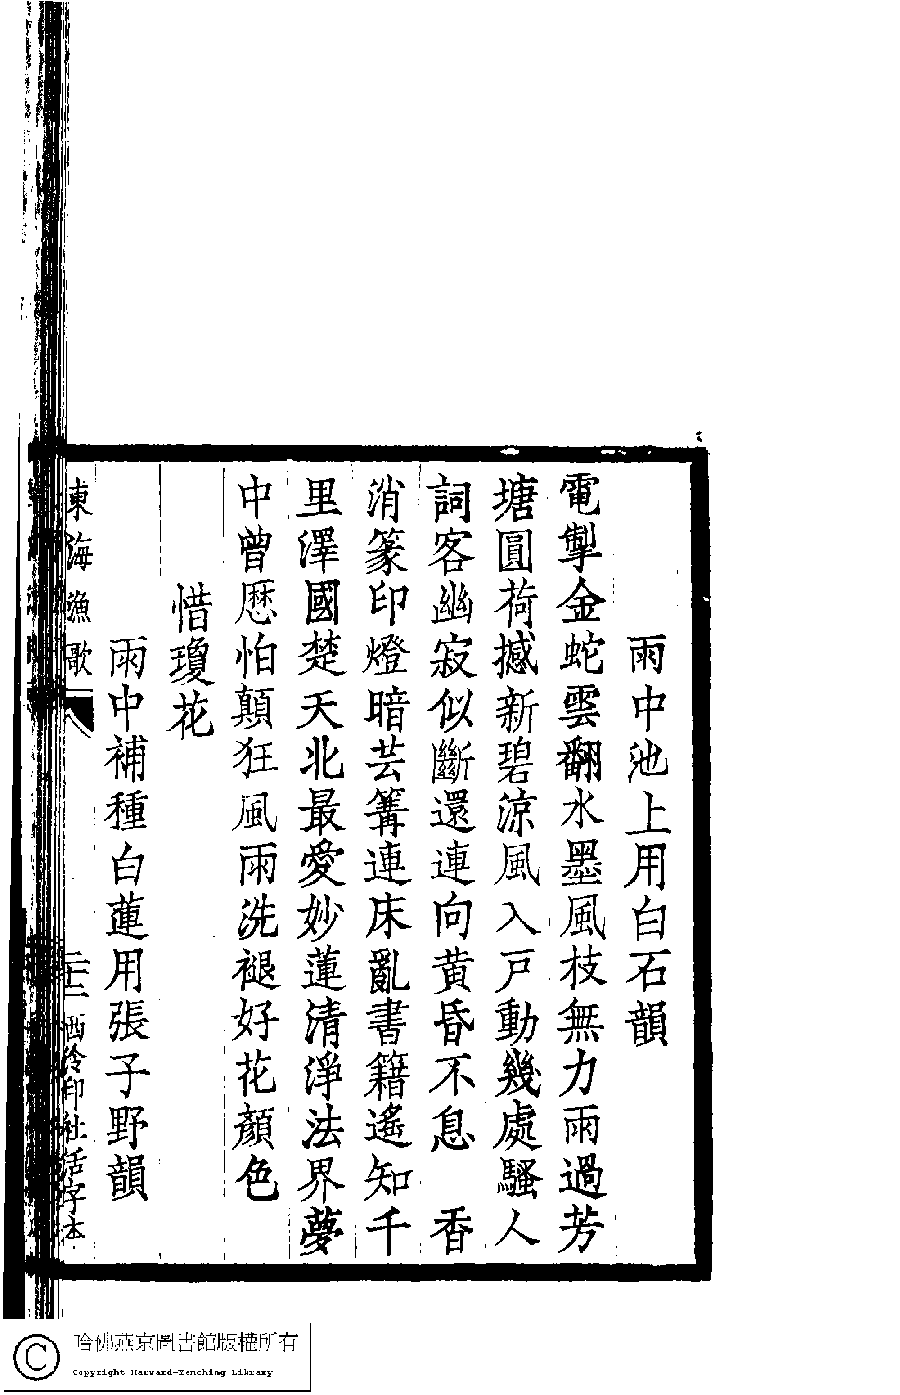 雨中池上用白石韻
電掣金蛇雲翻水墨風枝無力雨過芳
塘圓荷撼新碧涼風入戸動幾處騷人
詞客幽寂似斷還連向黄昏不息　香
消篆印燈暗芸篝連床亂書籍遙知千
里澤國楚天北最愛妙蓮清淨法界夢
中曾歴怕顛狂風雨洗褪好花顏色
惜瓊花
雨中補種白蓮用張子野韻
東海漁歌
二 二十二 西泠印社活字本
哈佛燕京圖書館版權所有
Copyright Harvard-Yenching Library